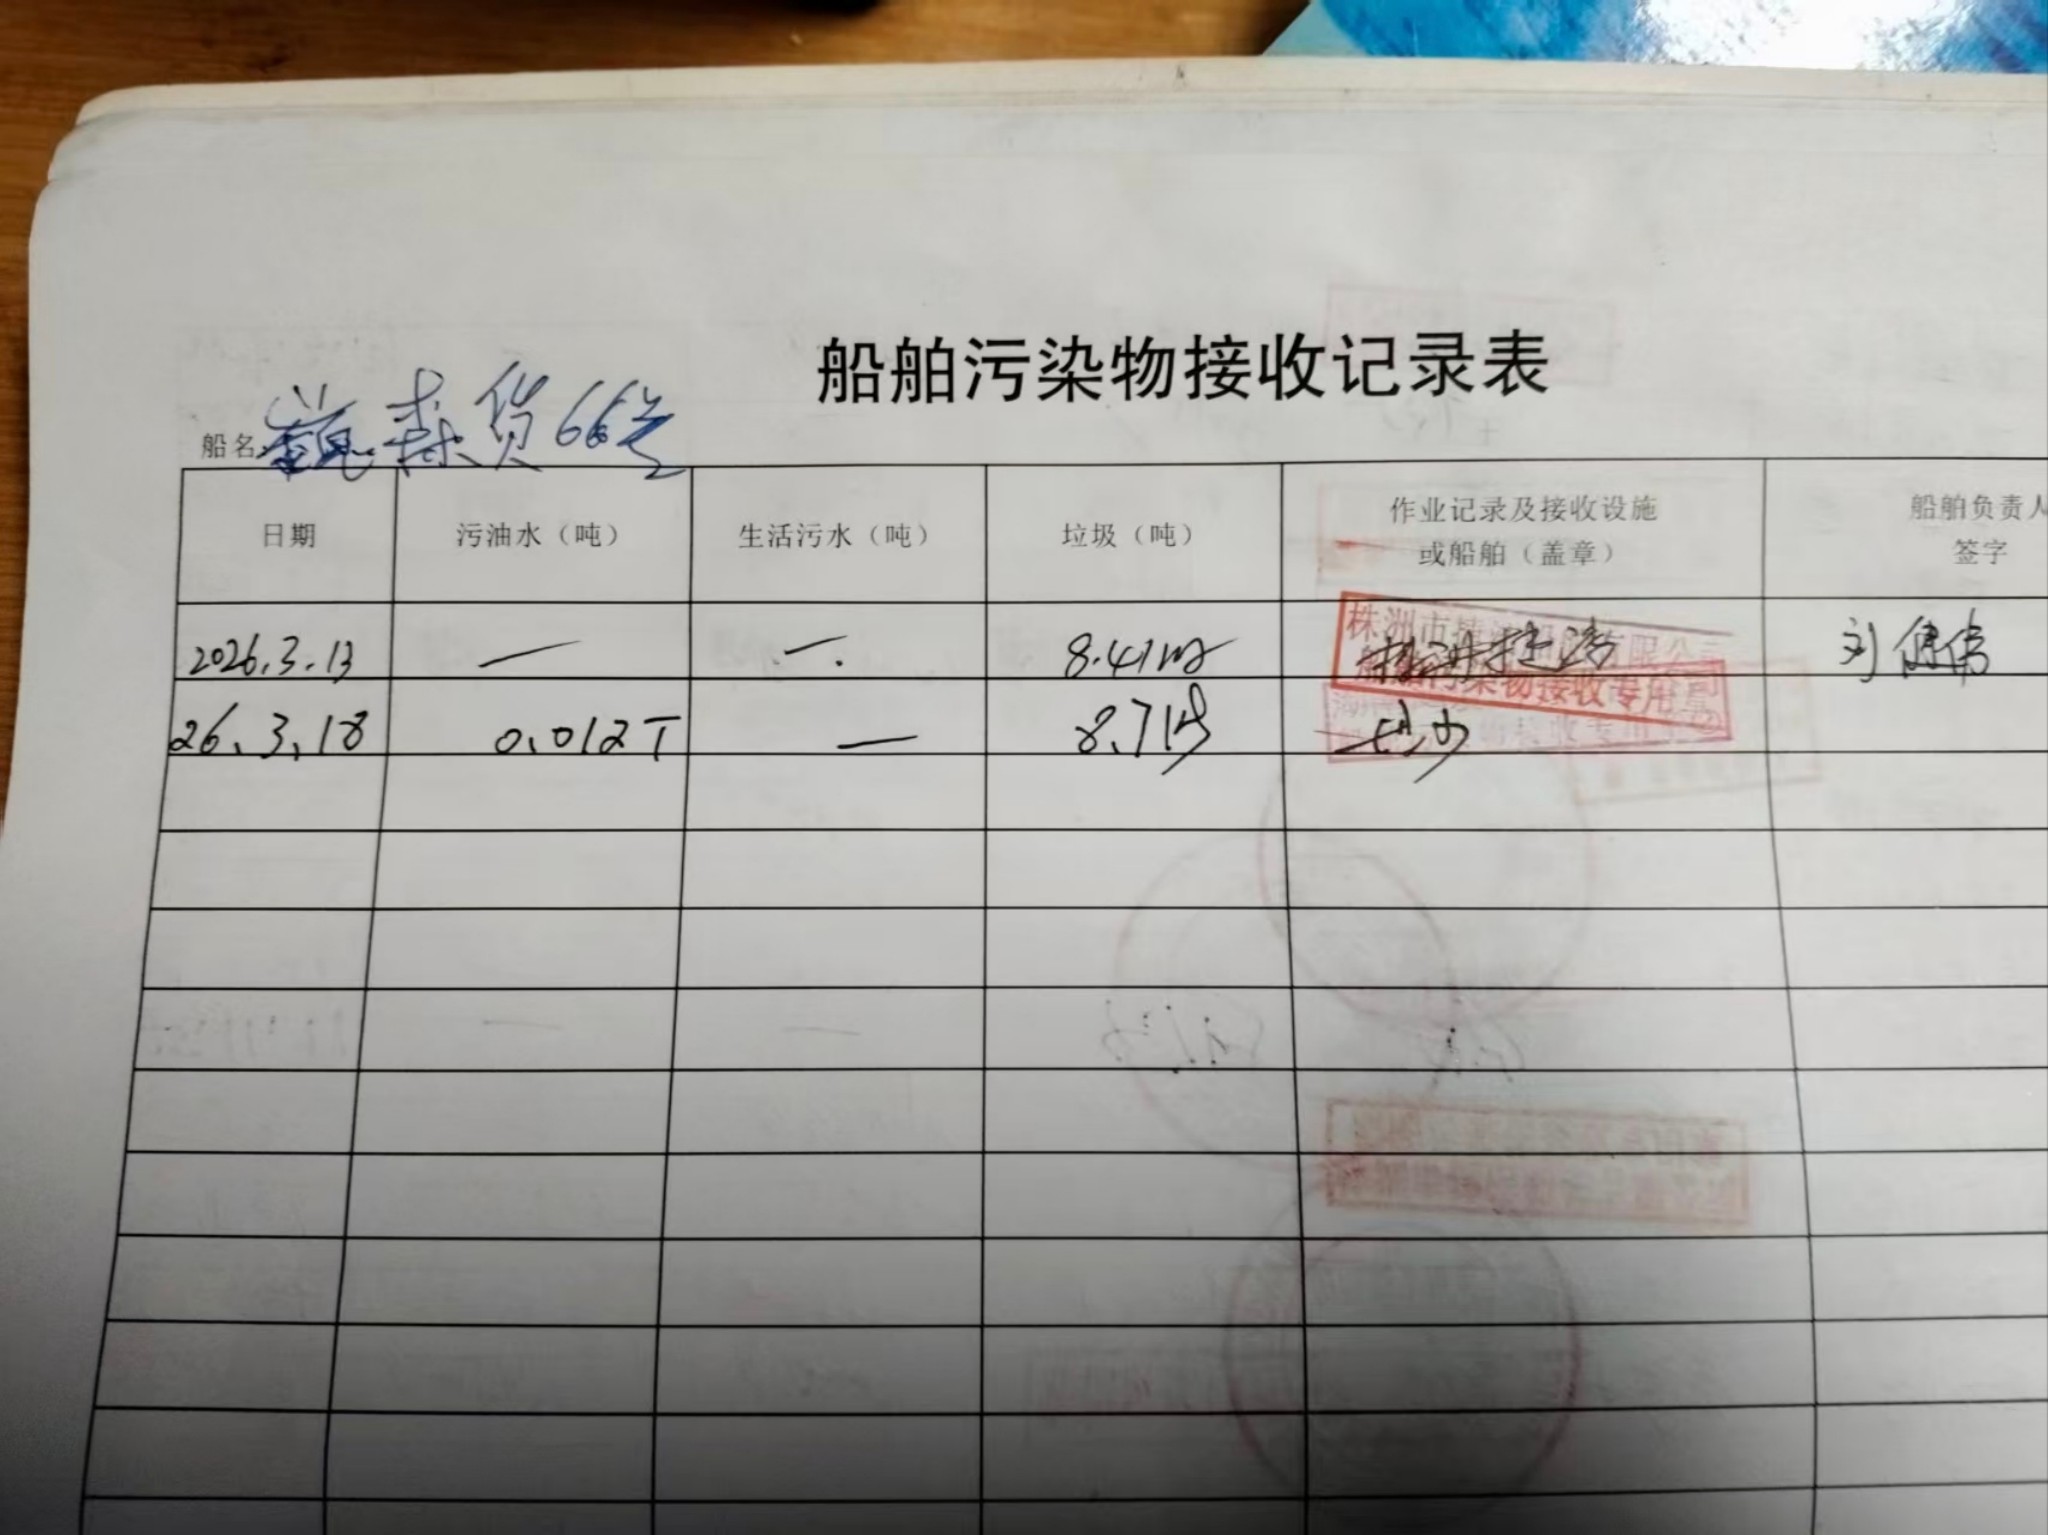 船舶污染物接收记录表
船名 森货66
日期 污油水（吨） 生活污水（吨） 垃圾（吨） 作业记录及接收设施 船舶负责人
或船舶（盖章） 签字
2026.3.13 — — 8.41 株洲市 有限公司 刘
船舶污染物接收专用章
26.3.18 0.012T — 8.71 长沙